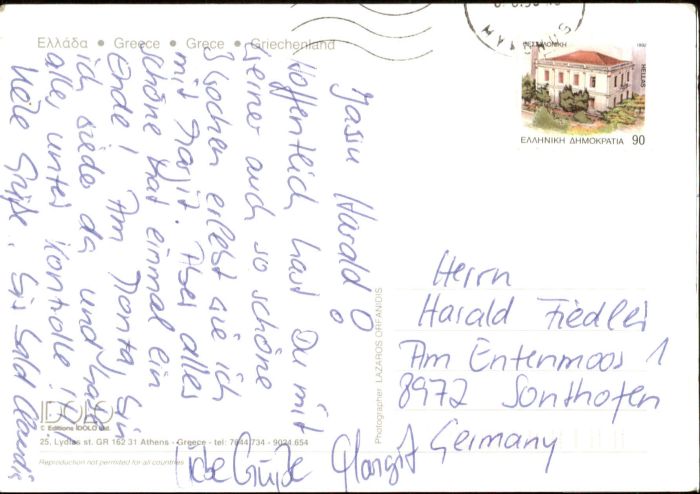 Ελλάδα • Greece • Grece • Griechenland
Jasu Harald!
Hoffentlich hast Du mit
Reiner auch so schöne
3 Wochen erlebt wie ich
mit Margit. Aber alles
schöne hat einmal ein
Ende! Am Montag bin
ich wieder da und
alles unter Kontrolle!
Liebe Grüße, bis bald Claudia
Liebe Grüße Margit
ΘΕΣΣΑΛΟΝΙΚΗ 1992
HELLAS
ΕΛΛΗΝΙΚΗ ΔΗΜΟΚΡΑΤΙΑ 90
Herrn
Harald Fiedler
Am Entenmoos 1
8972 Sonthofen
Germany
Photographer: LAZAROS ORFANIDIS
IDOLO
© Editions IDOLO Ltd.
25, Lydias st. GR 162 31 Athens - Greece - tel: 7644 734 - 9024 654
Reproduction not permitted for all countries